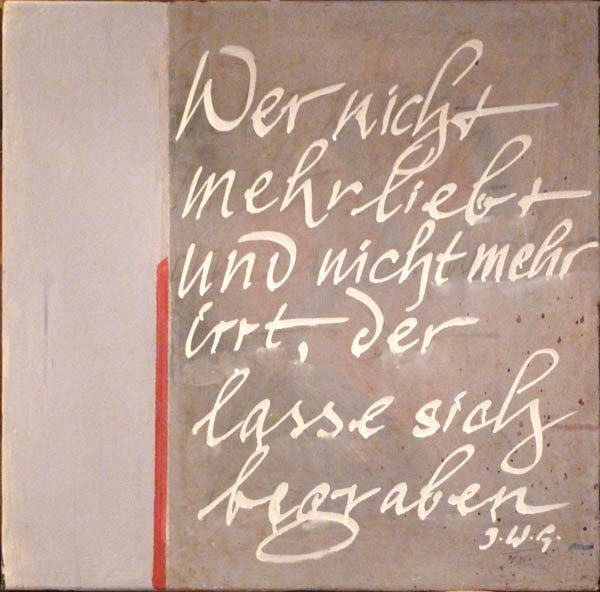 Wer nicht
mehr liebt
und nicht mehr
irrt, der
lasse sich
begraben
J.W.G.